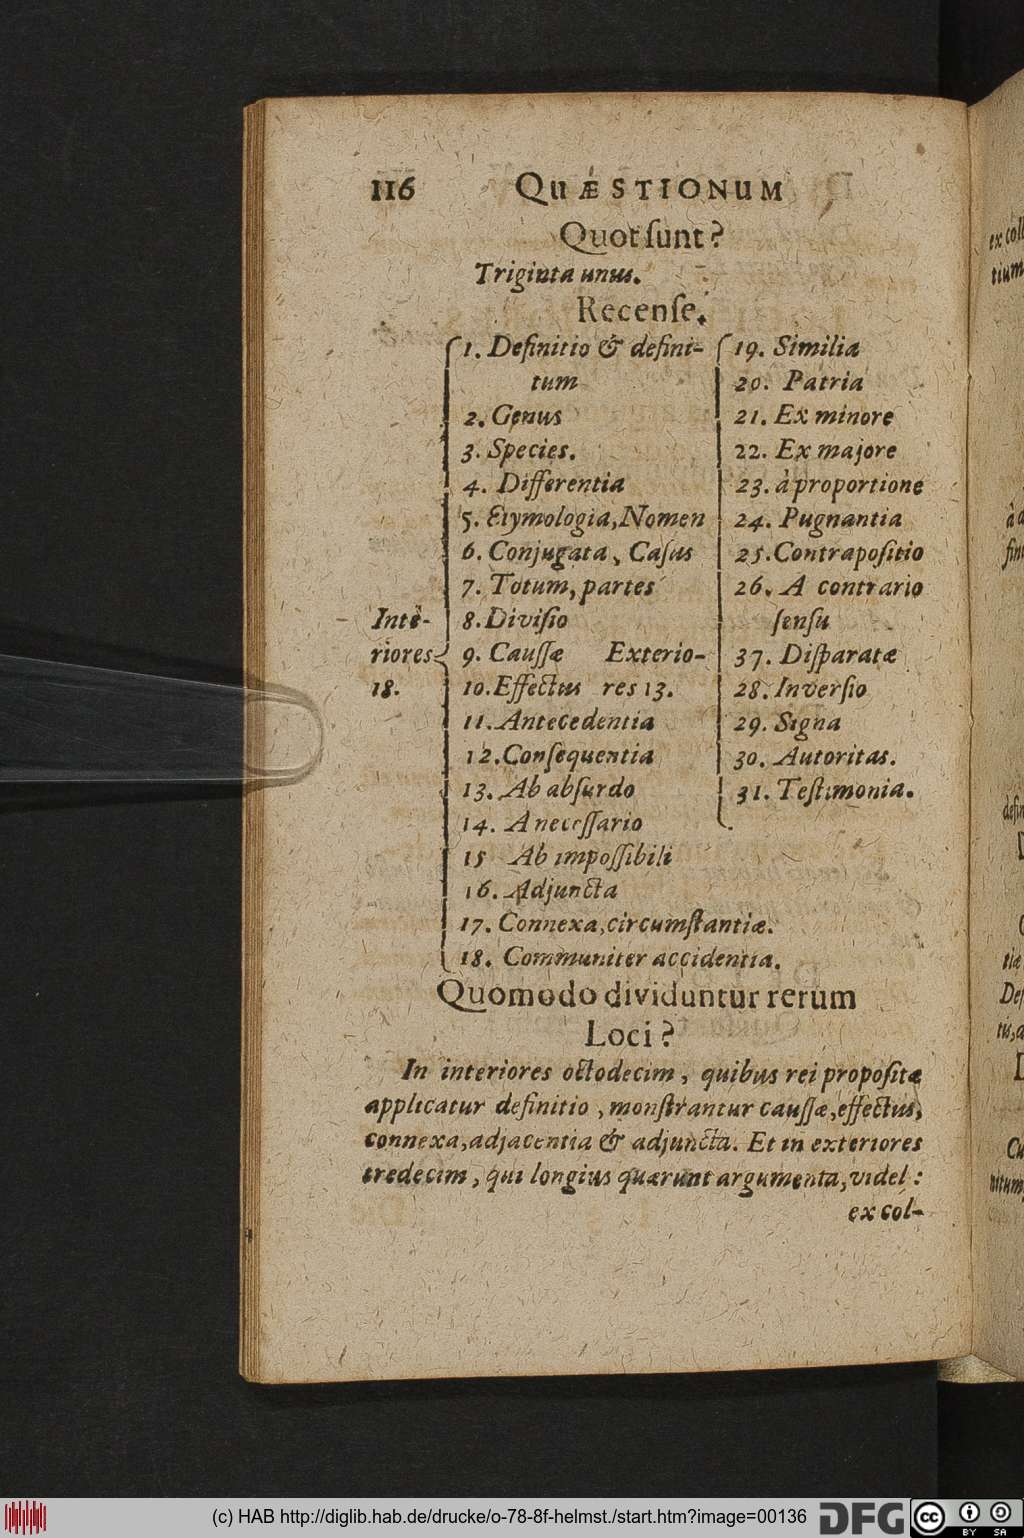 116 QUÆSTIONUM
Quot sunt?
Triginta unus.
Recense.
Interiores 18.
1. Definitio & defini-
tum
2. Genus
3. Species.
4. Differentia
5. Etymologia, Nomen
6. Conjugata, Casus
7. Totum, partes
8. Divisio
9. Caussæ
10. Effectus
11. Antecedentia
12. Consequentia
13. Ab absurdo
14. A necessario
15 Ab impossibili
16. Adjuncta
17. Connexa, circumstantiæ.
18. Communiter accidentia.
Exterio-
res 13.
19. Similia
20. Patria
21. Ex minore
22. Ex majore
23. à proportione
24. Pugnantia
25. Contrapositio
26. A contrario
sensu
37. Disparatæ
28. Inversio
29. Signa
30. Autoritas.
31. Testimonia.
Quomodo dividuntur rerum
Loci?
In interiores octodecim, quibus rei propositæ
applicatur definitio, monstrantur caussæ, effectus,
connexa, adjacentia & adjuncta. Et in exteriores
tredecim, qui longius quærunt argumenta, videl:
ex col-
(c) HAB http://diglib.hab.de/drucke/o-78-8f-helmst./start.htm?image=00136
DFG
cc BY SA